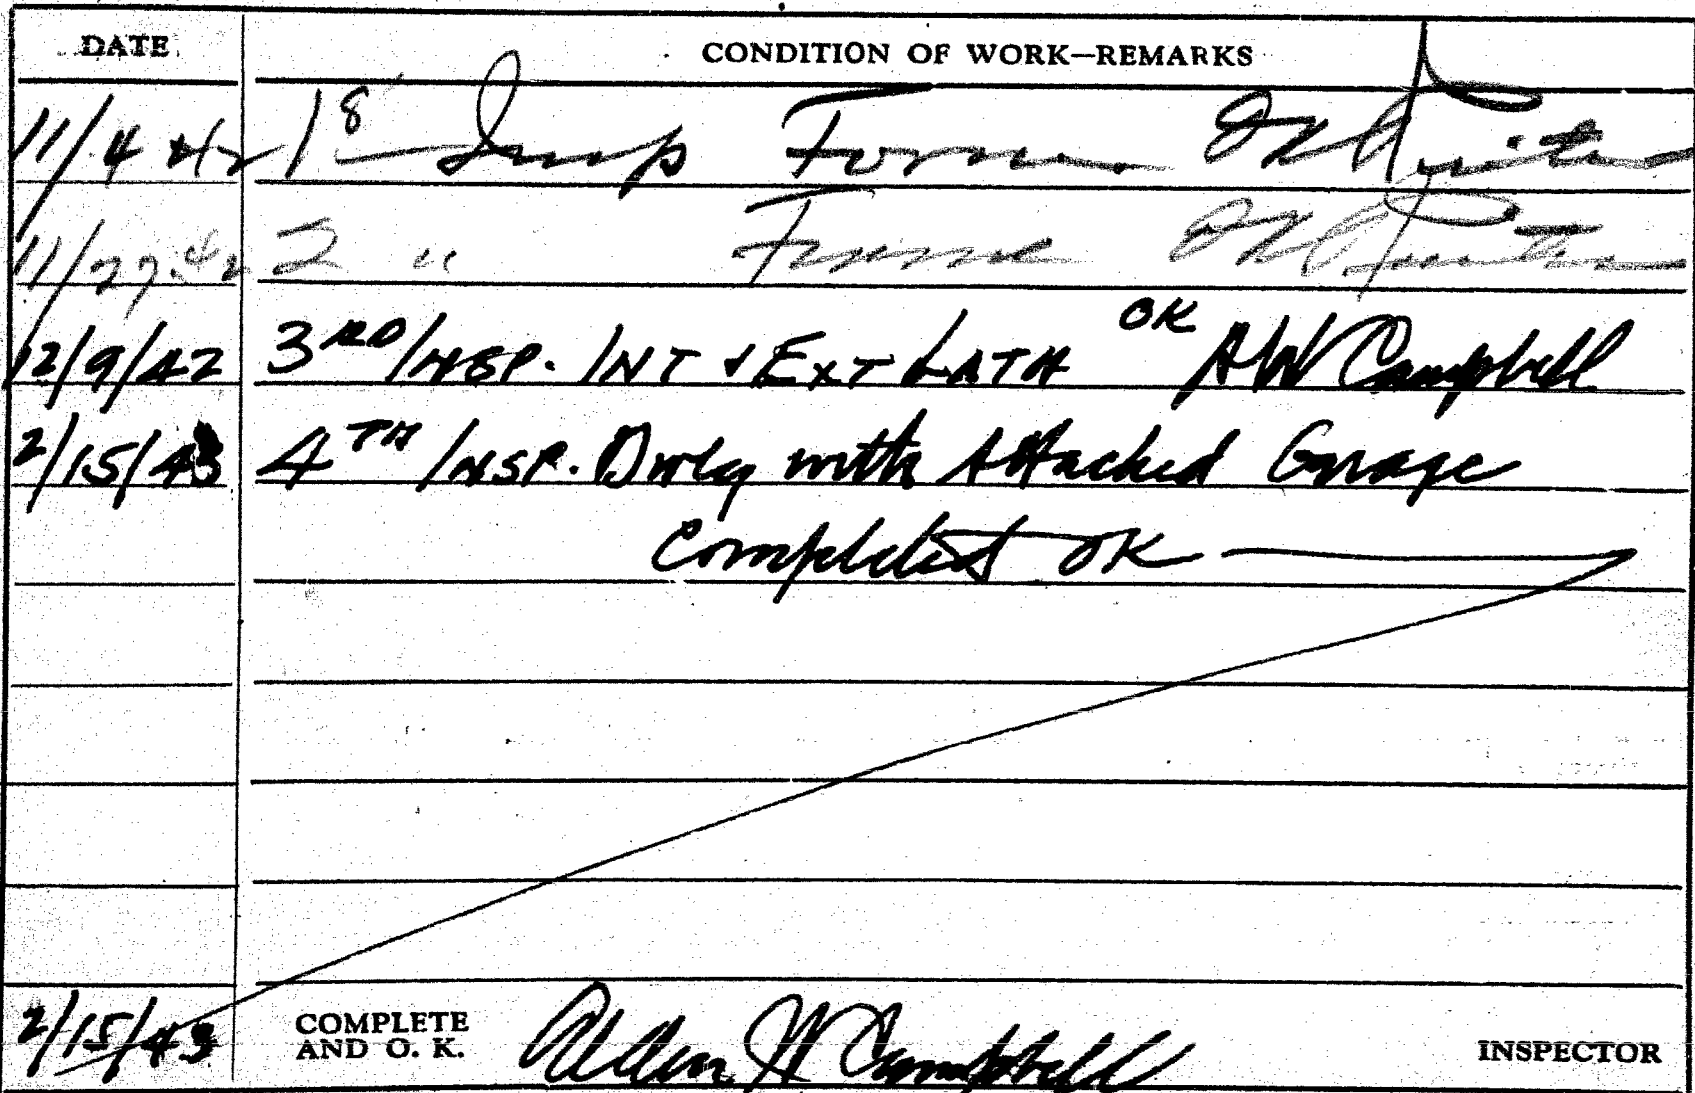 DATE CONDITION OF WORK—REMARKS
11/4 42 1st Insp Forms OK
11/27.42 2 " Frame OK
12/9/42 3RD INSP. INT & EXT LATH OK AW Campbell
2/15/43 4TH INSP. Dwlg with Attached Garage
Completed OK
2/15/43 COMPLETE AND O. K. Alden W Campbell INSPECTOR